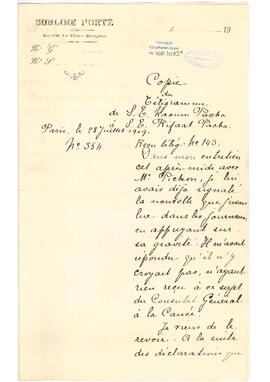 SUBLIME PORTE
6 19
Copie
du
Télégramme
de S. E. Naoum Pacha
à S. E. Rifaat Pacha.
Paris, le 28 Juillet 1909.
Nº 354 Reçu le 29. Nº 143.
Dans mon entretien
cet après-midi avec
Mr Pichon, je lui
avais déjà signalé
la nouvelle que j'avais
lue dans les journaux
en appuyant sur
sa gravité. Il m'avait
répondu qu'il n'y
croyait pas, n'ayant
rien reçu à ce sujet
du Consulat Général
à la Canée.
Je viens de le
revoir. A la suite
des déclarations que